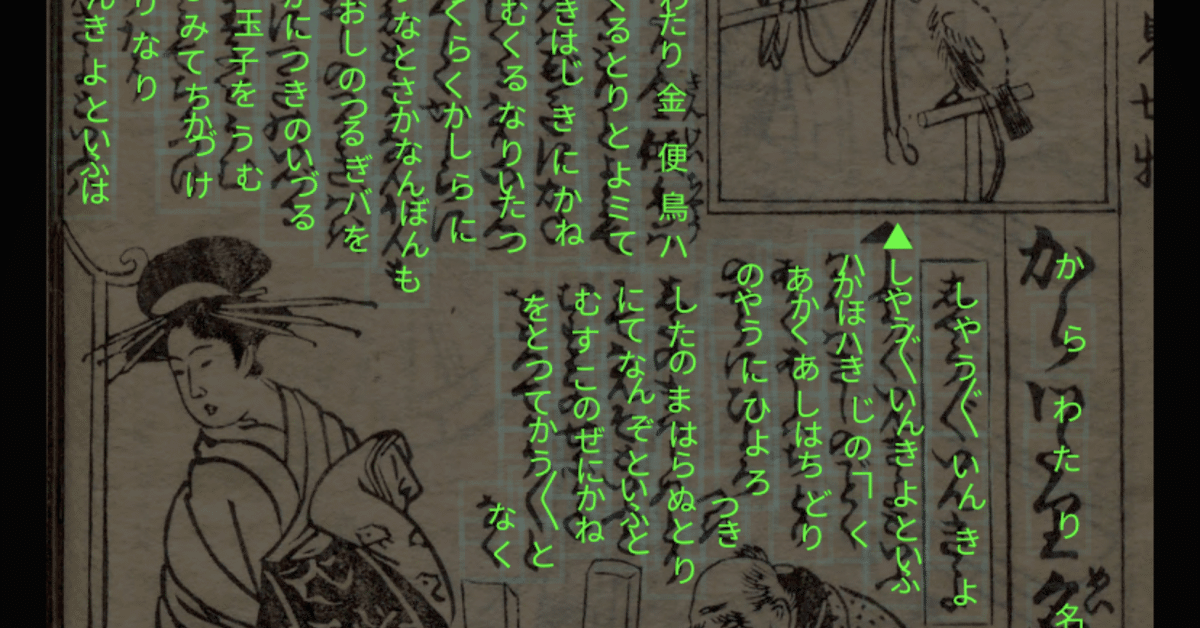 からわたり名
しやう〲いんきよ
▲しやう〲いんきよといふ
ハかほハきじの﹁く
あかくあしはちどり
のやうにひよろ
つき
したのまはらぬとり
にてなんぞといふと
むすこのぜにかね
をとつてかう〳〵と
なく
わたり金便鳥ハ
くるとりとよミて
きはじきにかね
むくるなりいたつ
てらくかしらに
なとさかなんぼんも
おしのつるぎバを
かにつきのいづる
玉子をうむ
みてちかづけ
りなり
んきよといふは